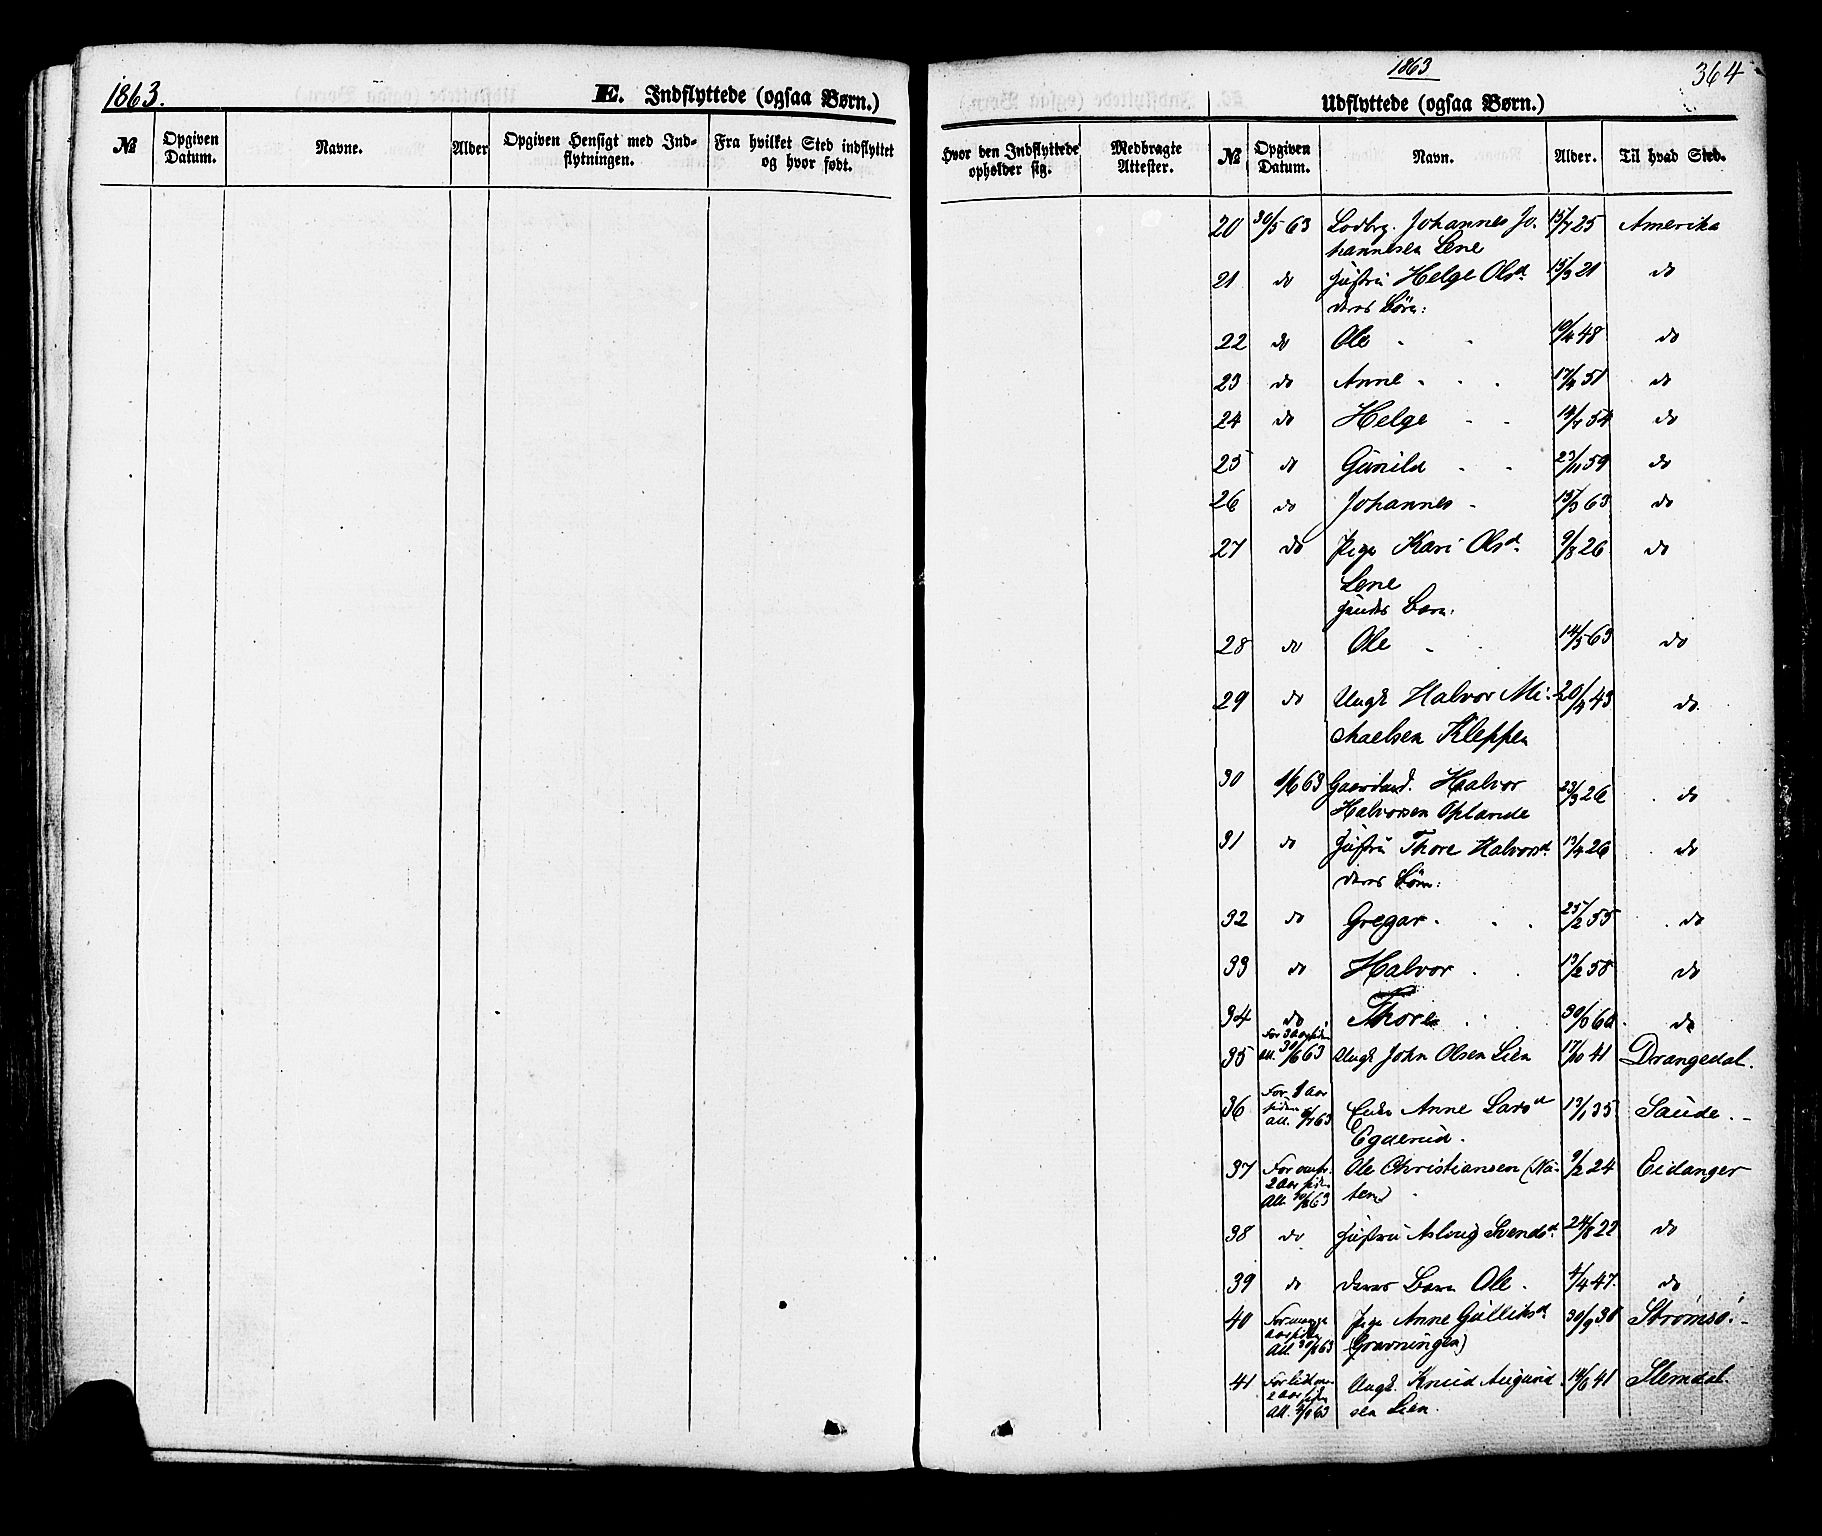 1863.
E. Indflyttede (ogsaa Børn.)
№ Opgiven Datum. Navne. Alder Opgiven Hensigt med Indflytningen. Fra hvilket Sted indflyttet og hvor født.
1863
364
Udflyttede (ogsaa Børn.)
Hvor den Indflyttede opholder sig. Medbragte Attester. № Opgiven Datum. Navn. Alder. Til hvad Sted.
20 30/5 63 Johannes Jo- 15/7 25 Amerika
hannesen Lene
21 do Hustru Helge Olsd. 15/3 21 do
deres Børn:
22 do Ole " " 10/4 48 do
23 do Anne " " 51 do
24 do Helge " " 54 do
25 do Gunild " " 23/11 59 do
26 do Johannes " 63 do
27 do Pige Kari Olsd. 9/8 26 do
Lene
hendes Barn:
28 do Ole " 14/5 63 do
29 do Ungk Halvor Mi- 43 do
chaelsen Kleppen
30 1/6 63 Gaardmd. Halvor 23/3 26 do
Halvorsen Oplande
31 do Hustru Thore Halvorsd. 13/4 26 do
deres Børn:
32 do Gregar " " 25/2 55 do
33 do Halvor " " 13/2 58 do
34 do Thore " do
35 For 3 Aar siden Att. 63 Ungk John Olsen Lien 17/10 41 Drangedal.
36 For 1 Aar siden Att. 63 Enke Anne Larsd 13/1 35 Saude. -
Egderud.
37 For omtr. 2 Aar siden Att. 63 Ole Christiansen (Na- 9/2 24 Eidanger
ten)
38 do Hustru Asloug Svendsd. 24/8 22 do
39 do deres Barn Ole. 4/4 47. do
40 For mange Aar siden Att. 63 Pige Anne Gulliksd. 30/9 30 Strømsø. -
(Gravningen)
41 For lidt over 2 Aar siden Att. 63 Ungk. Knud Augund 14/6 41 Slemdal.
sen Lien.